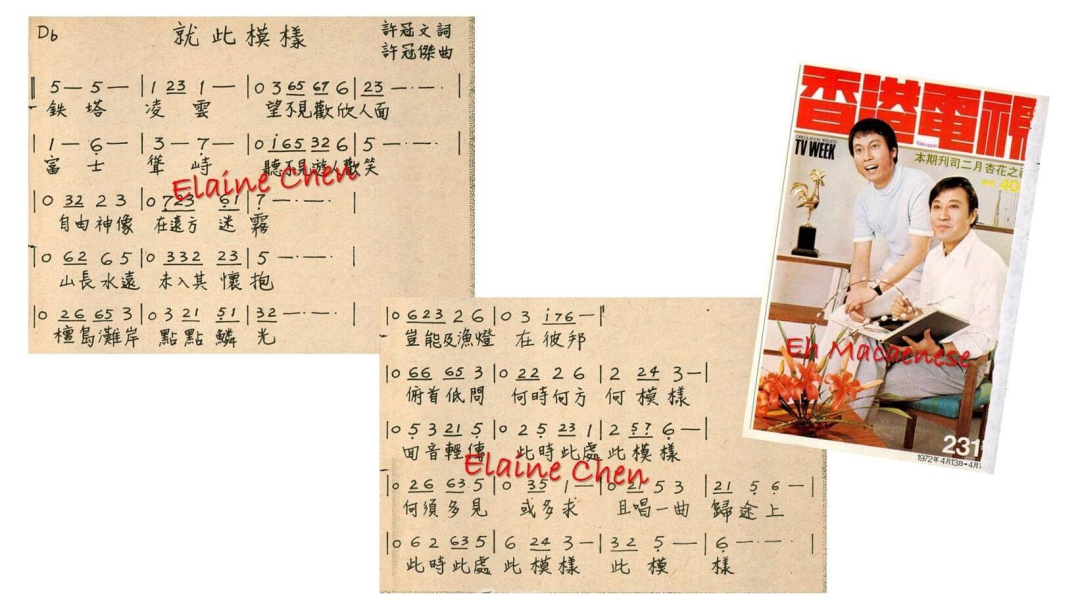 Db
就此模樣
許冠文詞
許冠傑曲
‖ 5 — 5 — | 1 23 1 — | 0 3 65 67 6 | 23 — · — · |
鉄塔 凌雲 望不見歡欣人面
1 — 6 — | 3 — 7 — | 0 i65 32 6 | 5 — · — · |
富士 聳峙 聽不見遊人歡笑
| 0 32 2 3 | 0 723 61 | 7 — · — · |
自由神像 在遠方 迷霧
| 0 62 6 5 | 0 332 23 | 5 — · — · |
山長水遠 未入其 懷抱
| 0 26 65 3 | 0 3 21 51 | 32 — · — · |
檀島灘岸 點點鱗光
| 0 623 2 6 | 0 3 i76 — ‖
豈能及漁燈 在彼邦
| 0 66 65 3 | 0 22 2 6 | 2 24 3 — |
俯首低問 何時何方 何模樣
| 0 5 3 21 5 | 0 2 5 23 1 | 2 57 6 — |
回音輕傳 此時此處 此模樣
| 0 26 63 5 | 0 35 1 — | 0 21 5 3 | 21 5 6 — |
何須多見 或多求 且唱一曲 歸途上
| 0 6 2 63 5 | 6 24 3 — | 32 5 — | 6 — · — · |
此時此處 此模樣 此模樣
Elaine Chen
Elaine Chen
香港電視
TV WEEK
本期刊司二月杏花之
40
Eh Macaenese
231
1972年4月13日-4月